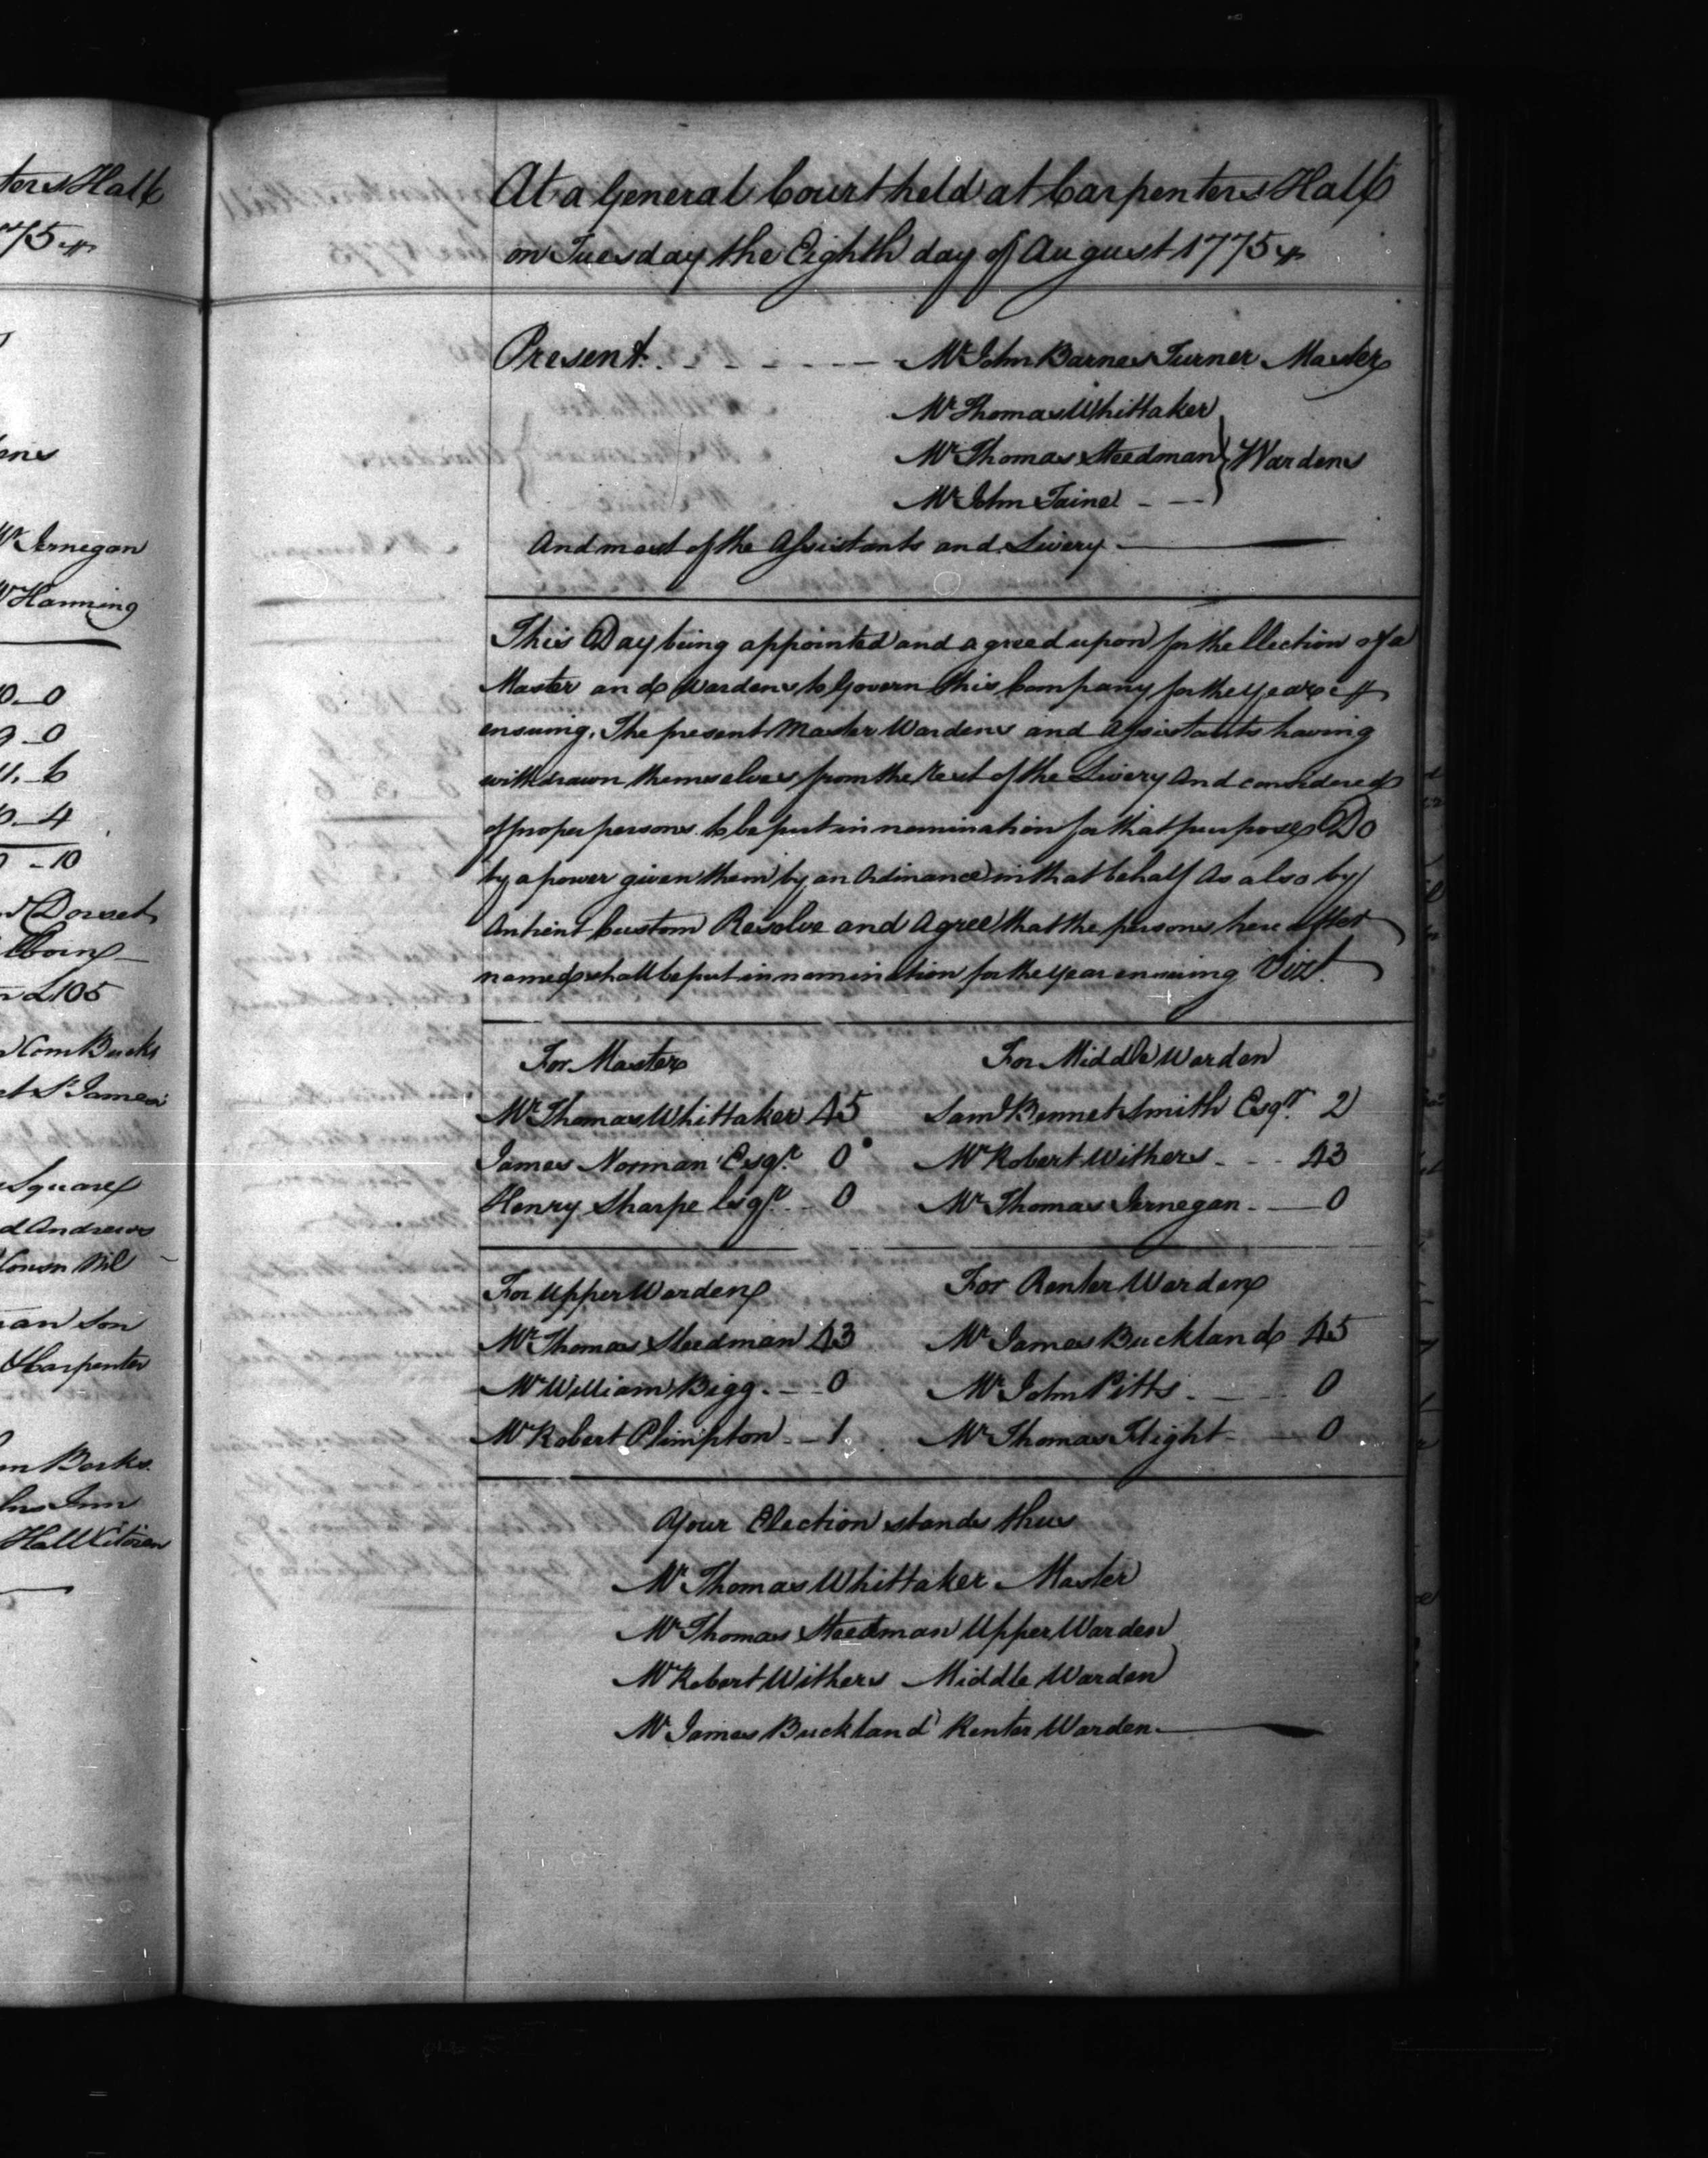 ters Hall
75
nes
Mr Jernegan
Mr Hanning
10_0
9_0
11_6
10_4
0_10
Dorset
lborn
£105
Com Bucks
et St James's
Square
d Andrews
an Son
Carpenter
m Berks
lns Inn
Hall Citizen
At a General Court held at Carpenters Hall
on Tuesday the Eighth day of August 1775
Present. - - - - - Mr John Barnes Turner Master
Mr Thomas Whittaker
Mr Thomas Steedman } Wardens
Mr John Taine - -
And most of the Assistants and Livery
This Day being appointed and agreed upon for the Election of a
Master and Wardens to Govern this Company for the Year
ensuing. The present Master Wardens and Assistants having
withdrawn themselves from the rest of the Livery And considered
of proper persons to be put in nomination for that purpose Do
by a power given them by an Ordinance in that behalf As also by
Antient Custom Resolve and Agree that the persons here after
named shall be put in nomination for the year ensuing Vizt.
For Master
Mr Thomas Whittaker 45
James Norman Esqr. 0
Henry Sharpe Esqr. - 0
For Middle Warden
Saml Bennet Smith Esqr. 2
Mr Robert Withers - - - 43
Mr Thomas Jernegan - — 0
For Upper Warden
Mr Thomas Steedman 43
Mr William Bigg. — 0
Mr Robert Plimpton — 1
For Renter Warden
Mr James Buckland 45
Mr John Pitts. — 0
Mr Thomas Flight - — 0
Your Election stands thus
Mr Thomas Whittaker Master
Mr Thomas Steedman Upper Warden
Mr Robert Withers Middle Warden
Mr James Buckland Renter Warden